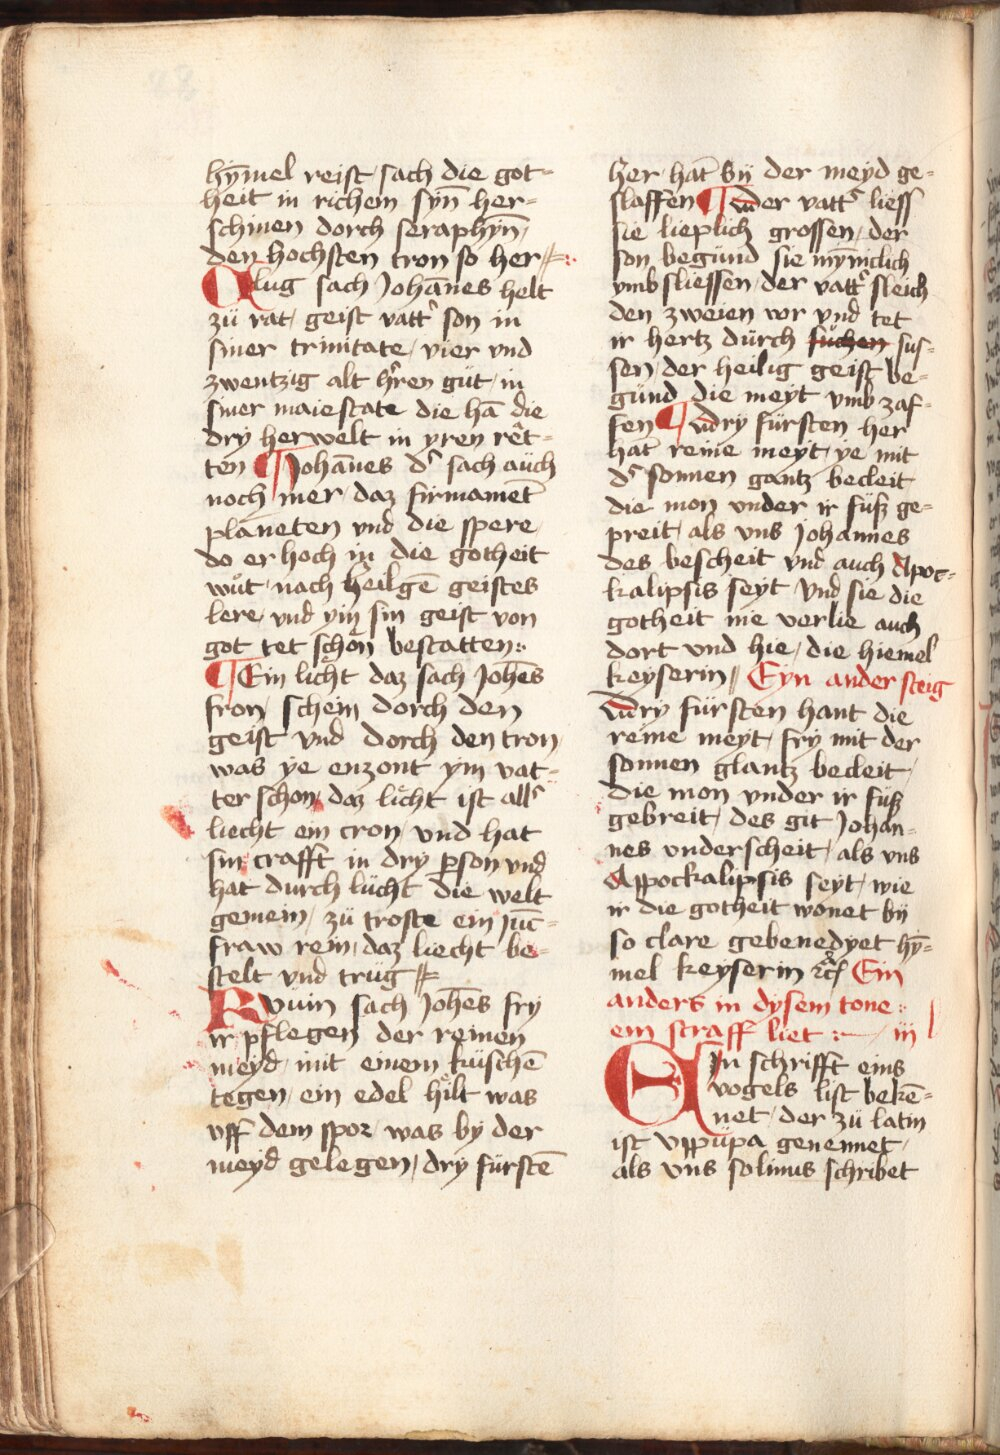 hȳmel reist / sach die got=
heit in richem syn̄ her=
schinen dorch seraphyn̄ /
den hochsten tron so her //
Clug sach Johānes helt
zü rat / geist vatt᷑ son in
siner trinitate / vier vnd
zwentzig alt h᷑ren güt / in
siner maiestate die hā die
dry herwelt in yren rêt=
ten ¶ Johānes d᷑ sach aüch
noch mer / daz firmamēt
planeten vnd die spere /
do er hoch in die gotheit
wüt / nach heilgē geistes
lere / vnd yin sin geist von
got tet schon bestatten :·
¶ Ein licht daz sach Johēs
fron / schein dorch den
geist vnd dorch den tron /
was ye enzont ym vat=
ter schon / daz licht ist all᷑
liecht ein cron / vnd hat
sin crafft in dry ꝑson vnd
hat durch lücht die welt
gemein / zü troste ein juc̄=
fraw rein / daz liecht be=
stelt vnd trug //
Rvmn sach Johēs fry
ir pflegen der reinen
meyd / mit einem küschē
tegen / ein edel hilt was
vff dem spor / was by der
meyd gelegen / dry fürstē
her / hāt by der meyd ge=
slaffen ¶ der vatt᷑ liess
sie lieplich grossen / der
son begund sie mynniclich
vmb sliessen / der vatt᷑ sleich
den zweien vor vnd tet
ir hertz dürch süchen sus=
sen / der heilig geist be=
günd die meyt vmb zaf=
fen ¶ dry fürsten her
hāt reine meyt / ye mit
d᷑ sonnen gantz becleit
die mon vnder ir füß ge=
preit / als vns Johannes
des bescheit vnd auch Apoc=
kalipsis seyt / Vnd sie die
gotheit nie verlie auch
dort vnd hie / die hiemel
keyserin // Eyn ander steig
dry fürsten hant die
reine meyt / fry mit der
sonnen glantz becleit /
die mon vnder ir füß
gebreit / des git Johan=
nes vnderscheit / als vns
Appockalipsis seyt / wie
ir die gotheit wonet by
so clare gebenedyet hȳ=
mel keyserin ꝛc̄ Ein
anders in dysem tone :·
ein straff liet :— iij
Ein schrifft eins
vogels list bekē=
net / der zü latin
ist vppüpa genennet /
als vns solinus schribet